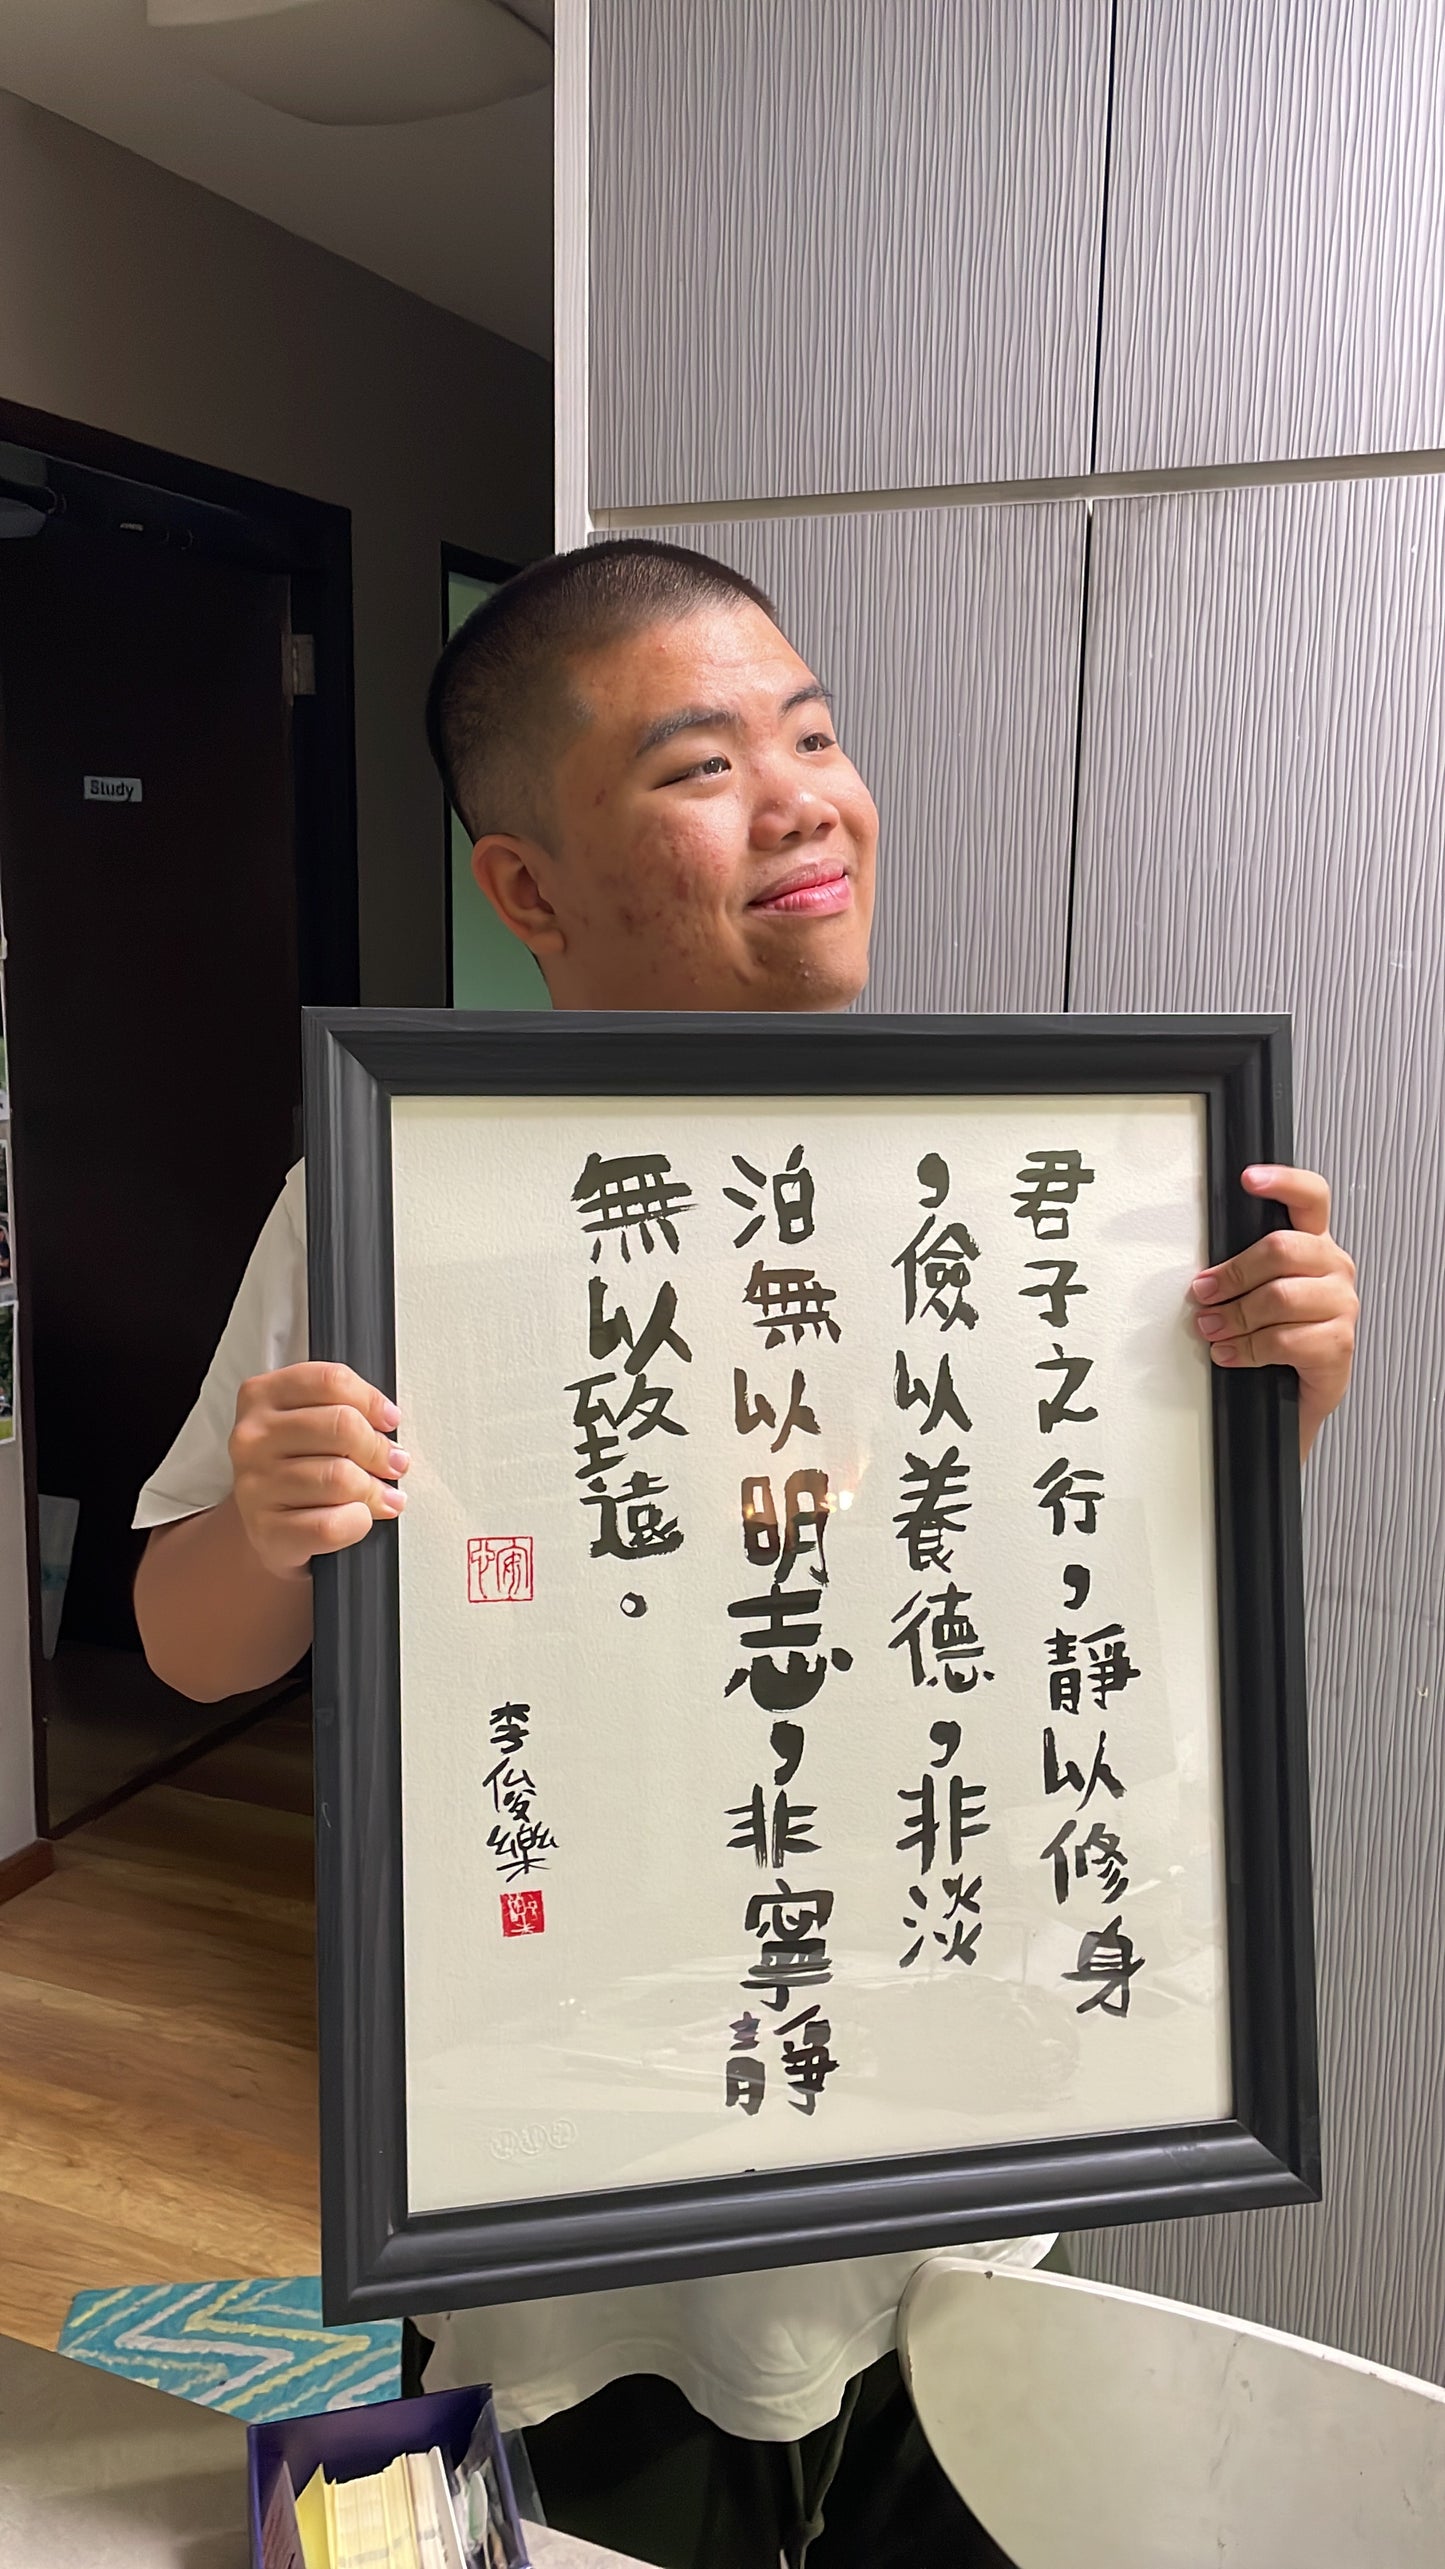 君子之行，靜以修身
，儉以養德，非淡
泊無以明志，非寧靜
無以致遠。
李俊樂
Study